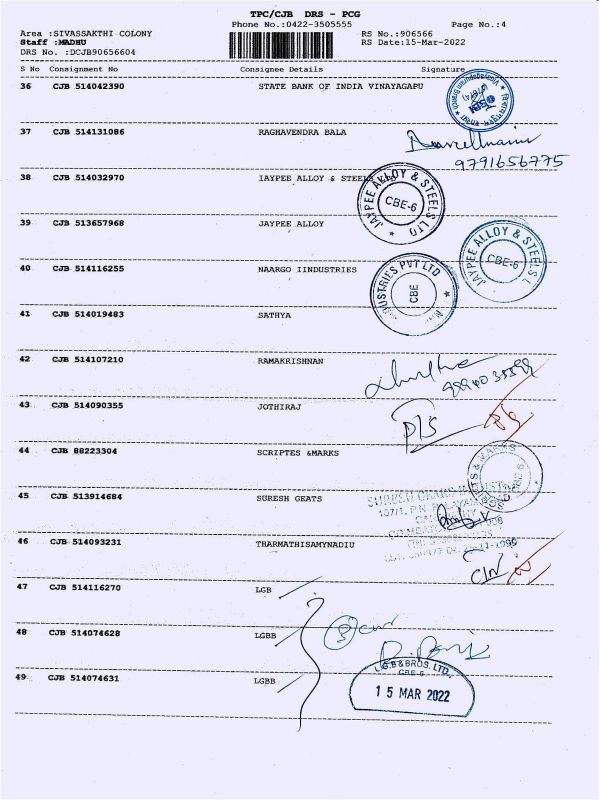 TPC/CJB DRS - PCG
Phone No.:0422-3505555 Page No.:4
Area :SIVASSAKTHI COLONY RS No.:906566
Staff :MADHU RS Date:15-Mar-2022
DRS No. :DCJB90656604
S No Consignment No Consignee Details Signature
36 CJB 514042390 STATE BANK OF INDIA VINAYAGAPU
37 CJB 514131086 RAGHAVENDRA BALA
9791656775
38 CJB 514032970 IAYPEE ALLOY & STEELS
JAYPEE ALLOY & STEELS LTD
CBE-6
39 CJB 513657968 JAYPEE ALLOY
JAYPEE ALLOY & STEELS L
CBE-6
40 CJB 514116255 NAARGO IINDUSTRIES
DUSTRIES PVT LTD
CBE
41 CJB 514019483 SATHYA
42 CJB 514107210 RAMAKRISHNAN
43 CJB 514090355 JOTHIRAJ
44 CJB 88223304 SCRIPTES &MARKS
45 CJB 513914684 SURESH GEATS
46 CJB 514093231 THARMATHISAMYNADIU
47 CJB 514116270 LGB
48 CJB 514074628 LGBB
49 CJB 514074631 LGBB
L.G.B & BROS. LTD.
CBE-6
15 MAR 2022